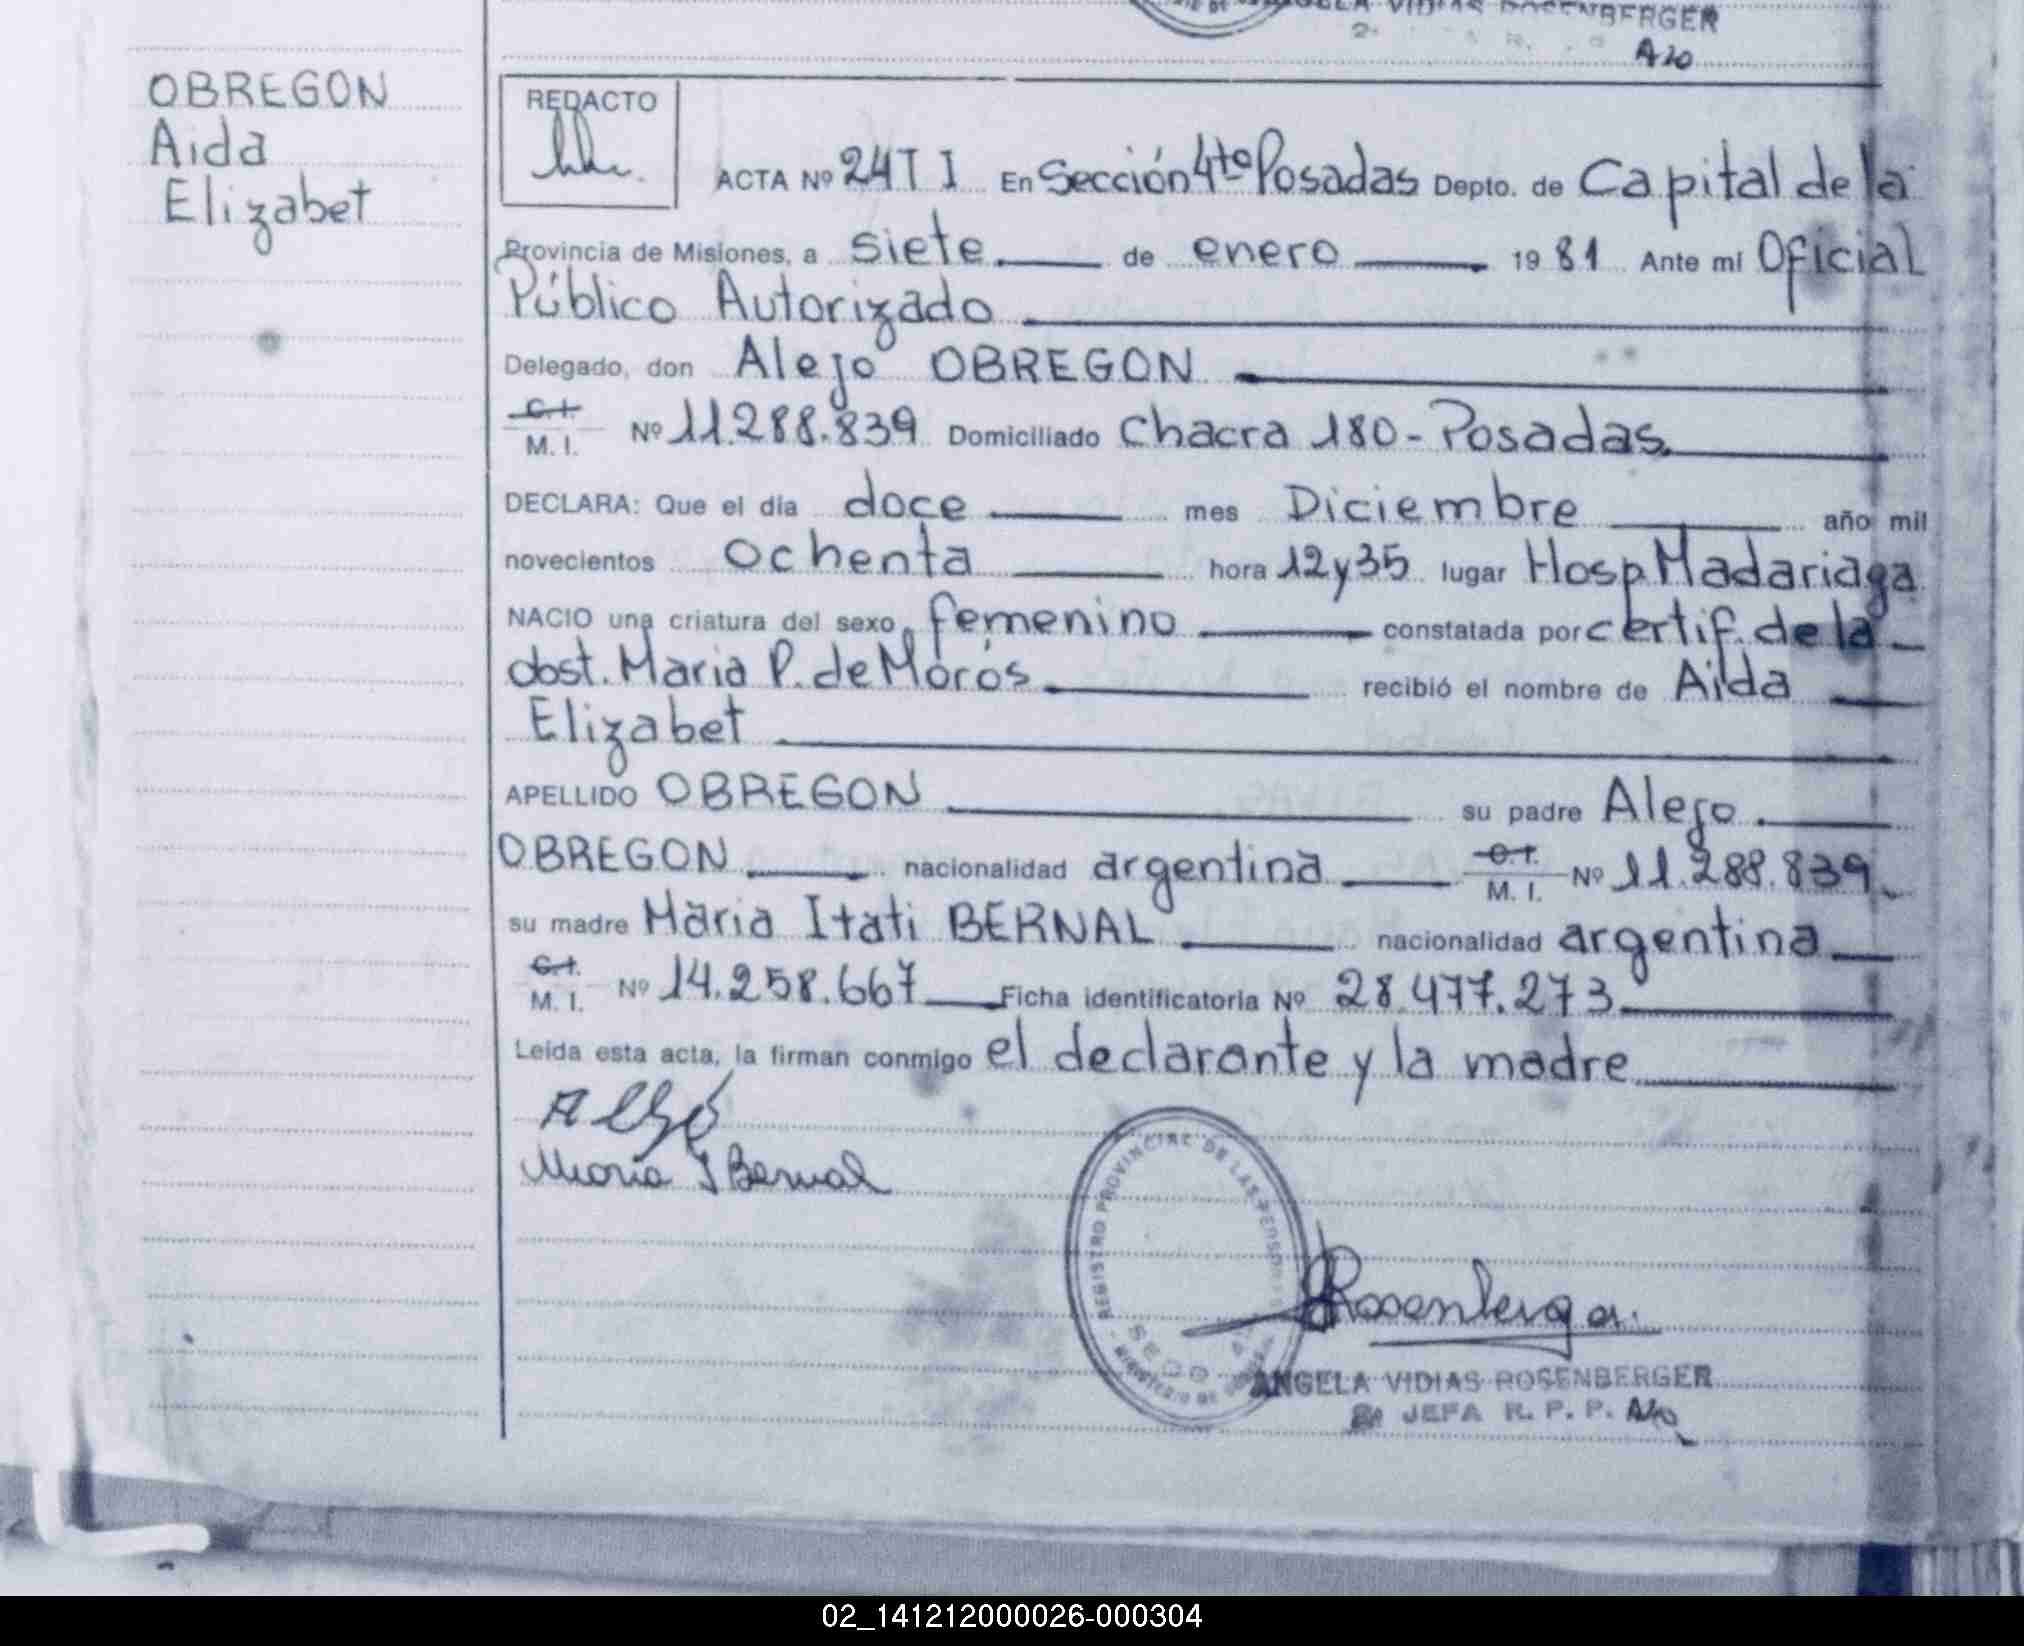 ANGELA VIDIAS ROSENBERGER
OBREGON
Aida
Elizabet
REDACTO
ACTA Nº 24 T I En Sección 4tª Posadas Depto. de Capital de la
Provincia de Misiones, a siete de enero 1981 Ante mi Oficial
Público Autorizado
Delegado, don Alejo OBREGON
C.I. M. I. Nº 11.288.839 Domiciliado Chacra 180 - Posadas
DECLARA: Que el dia doce mes Diciembre año mil
novecientos ochenta hora 12 y 35 lugar Hosp. Madariaga
NACIO una criatura del sexo femenino constatada por certif. de la
obst. Maria P. de Morós recibió el nombre de Aida
Elizabet
APELLIDO OBREGON su padre Alejo
OBREGON nacionalidad argentina C.I. M. I. Nº 11.288.839
su madre Maria Itati BERNAL nacionalidad argentina
C.I. M. I. Nº 14.258.667 Ficha identificatoria Nº 28.477.273
Leida esta acta, la firman conmigo el declarante y la madre
Maria I Bernal
REGISTRO PROVINCIAL DE LAS PERSONAS
Rosenberger
ANGELA VIDIAS ROSENBERGER
JEFA R. P. P.
02_141212000026-000304